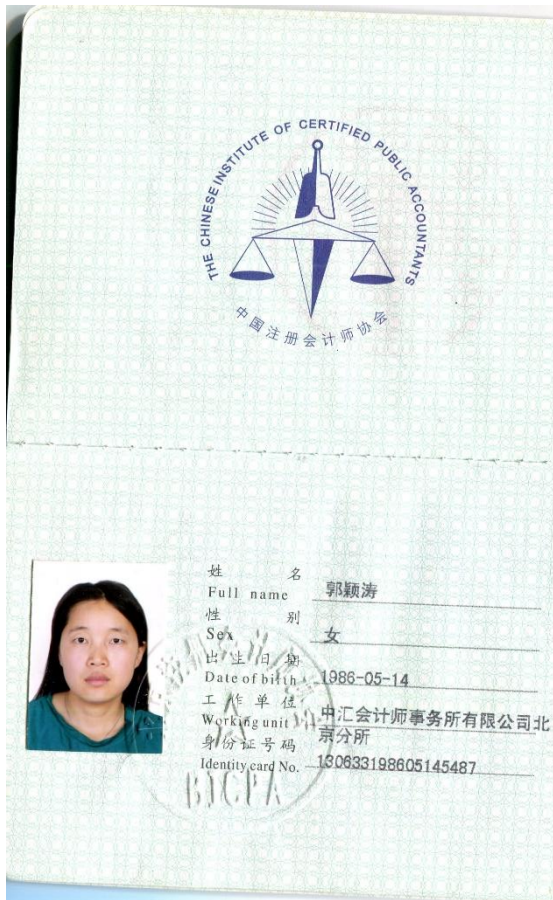 THE CHINESE INSTITUTE OF CERTIFIED PUBLIC ACCOUNTANTS
中国注册会计师协会
姓 名
Full name 郭颖涛
性 别
Sex 女
出生日期
Date of birth 1986-05-14
工作单位
Working unit 中汇会计师事务所有限公司北
京分所
身份证号码
Identity card No. 130633198605145487
BICPA